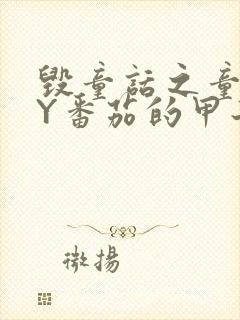 毁童话之童
Y番茄的甲
微揚